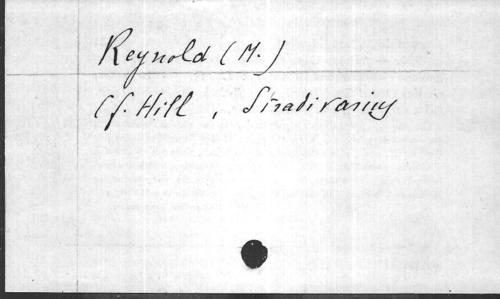 Reynold (M.)
Cf. Hill, Stradivarius